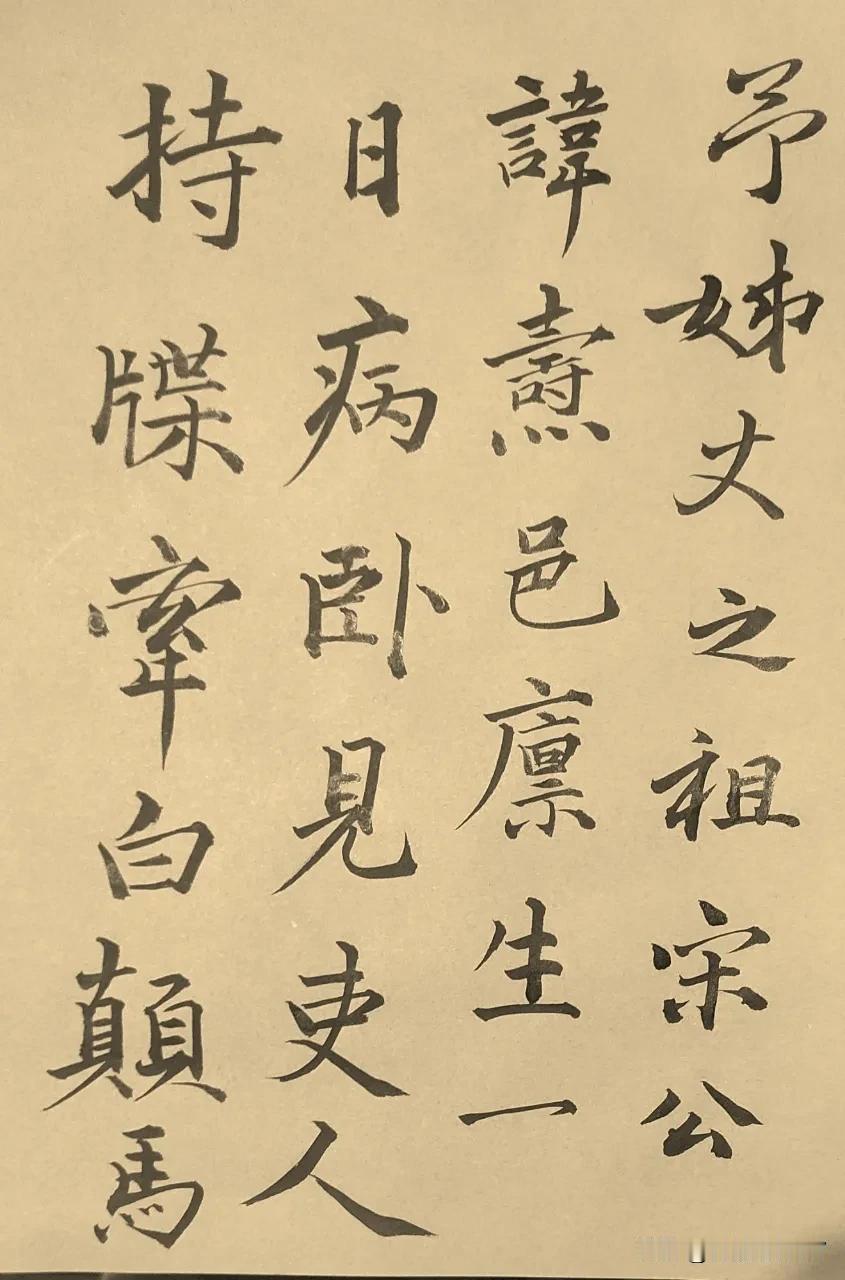 予姊丈之祖宋公
諱燾邑廪生一
日病卧見吏人
持牒牽白顛馬